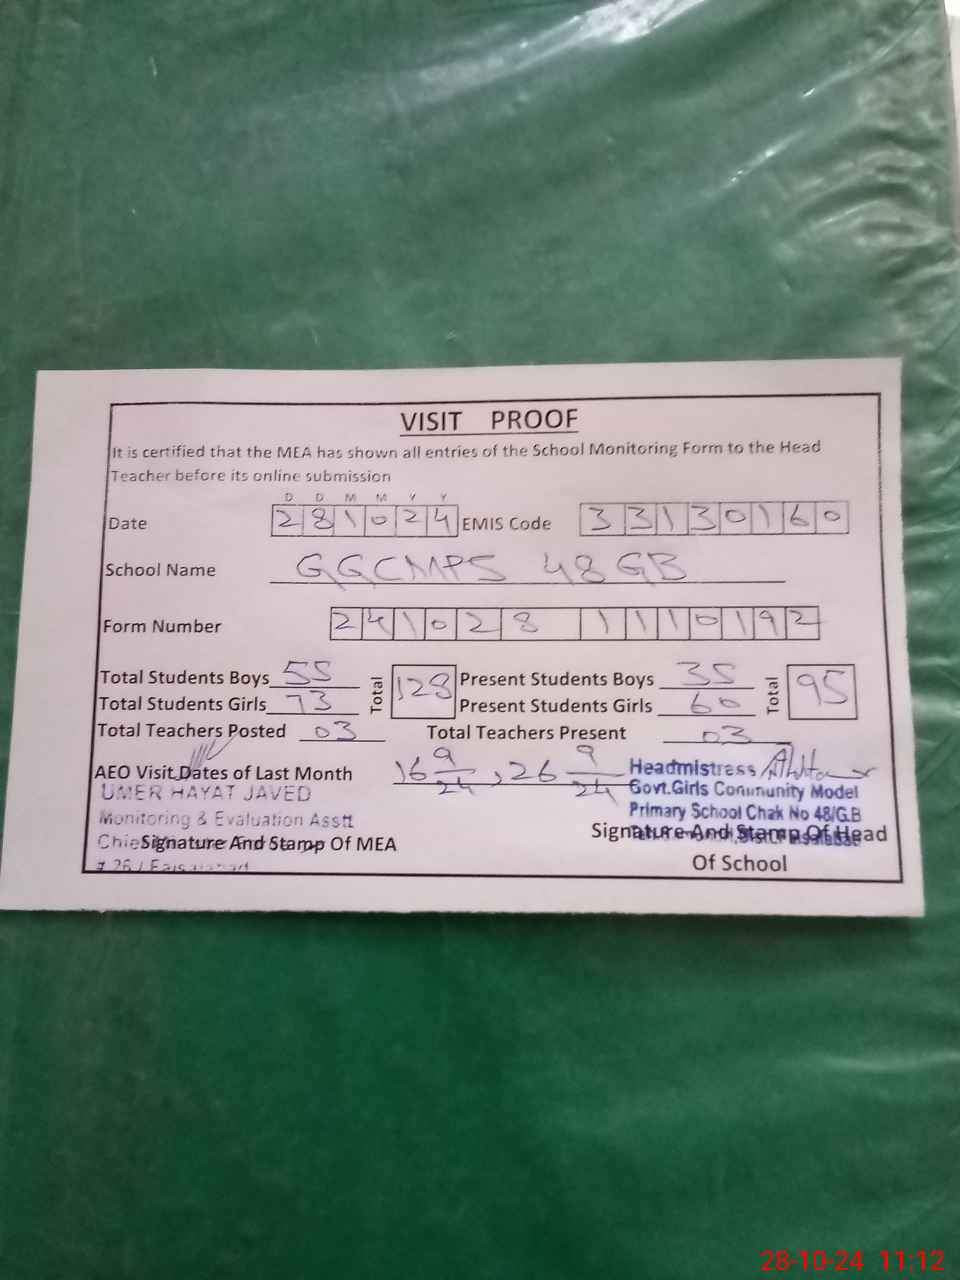 VISIT PROOF
It is certified that the MEA has shown all entries of the School Monitoring Form to the Head
Teacher before its online submission
D D M M Y Y
Date 2 8 1 0 2 4 EMIS Code 3 3 1 3 0 1 6 0
School Name GGCMPS 48 GB
Form Number 2 4 1 0 2 8 1 1 1 0 1 9 2
Total Students Boys 55 Total 128 Present Students Boys 35 Total 95
Total Students Girls 73 Present Students Girls 60
Total Teachers Posted 03 Total Teachers Present 03
AEO Visit Dates of Last Month 16 9/24, 26 9/24 Headmistress
UMER HAYAT JAVED Govt.Girls Community Model
Monitoring & Evaluation Asstt Primary School Chak No 48/G.B
Signature And Stamp Of MEA Signature And Stamp Of Head
Of School
28-10-24 11:12